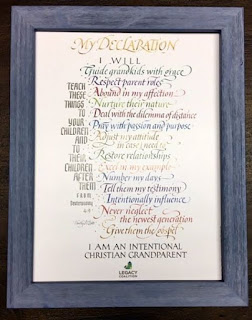 MY DECLARATION
I WILL
Guide grandkids with grace
Respect parent roles
Abound in my affection
Nurture their nature
Deal with the dilemma of distance
Pray with passion and purpose
Adjust my attitude
in case I need to
Restore relationships
Excel in my example
Number my days
Tell them my testimony
Intentionally influence
Never neglect
the newest generation
Give them the gospel
TEACH
THESE
THINGS
TO
YOUR
CHILDREN
AND
TO
THEIR
CHILDREN
AFTER
THEM
From
Deuteronomy
I AM AN INTENTIONAL
CHRISTIAN GRANDPARENT
LEGACY
COALITION